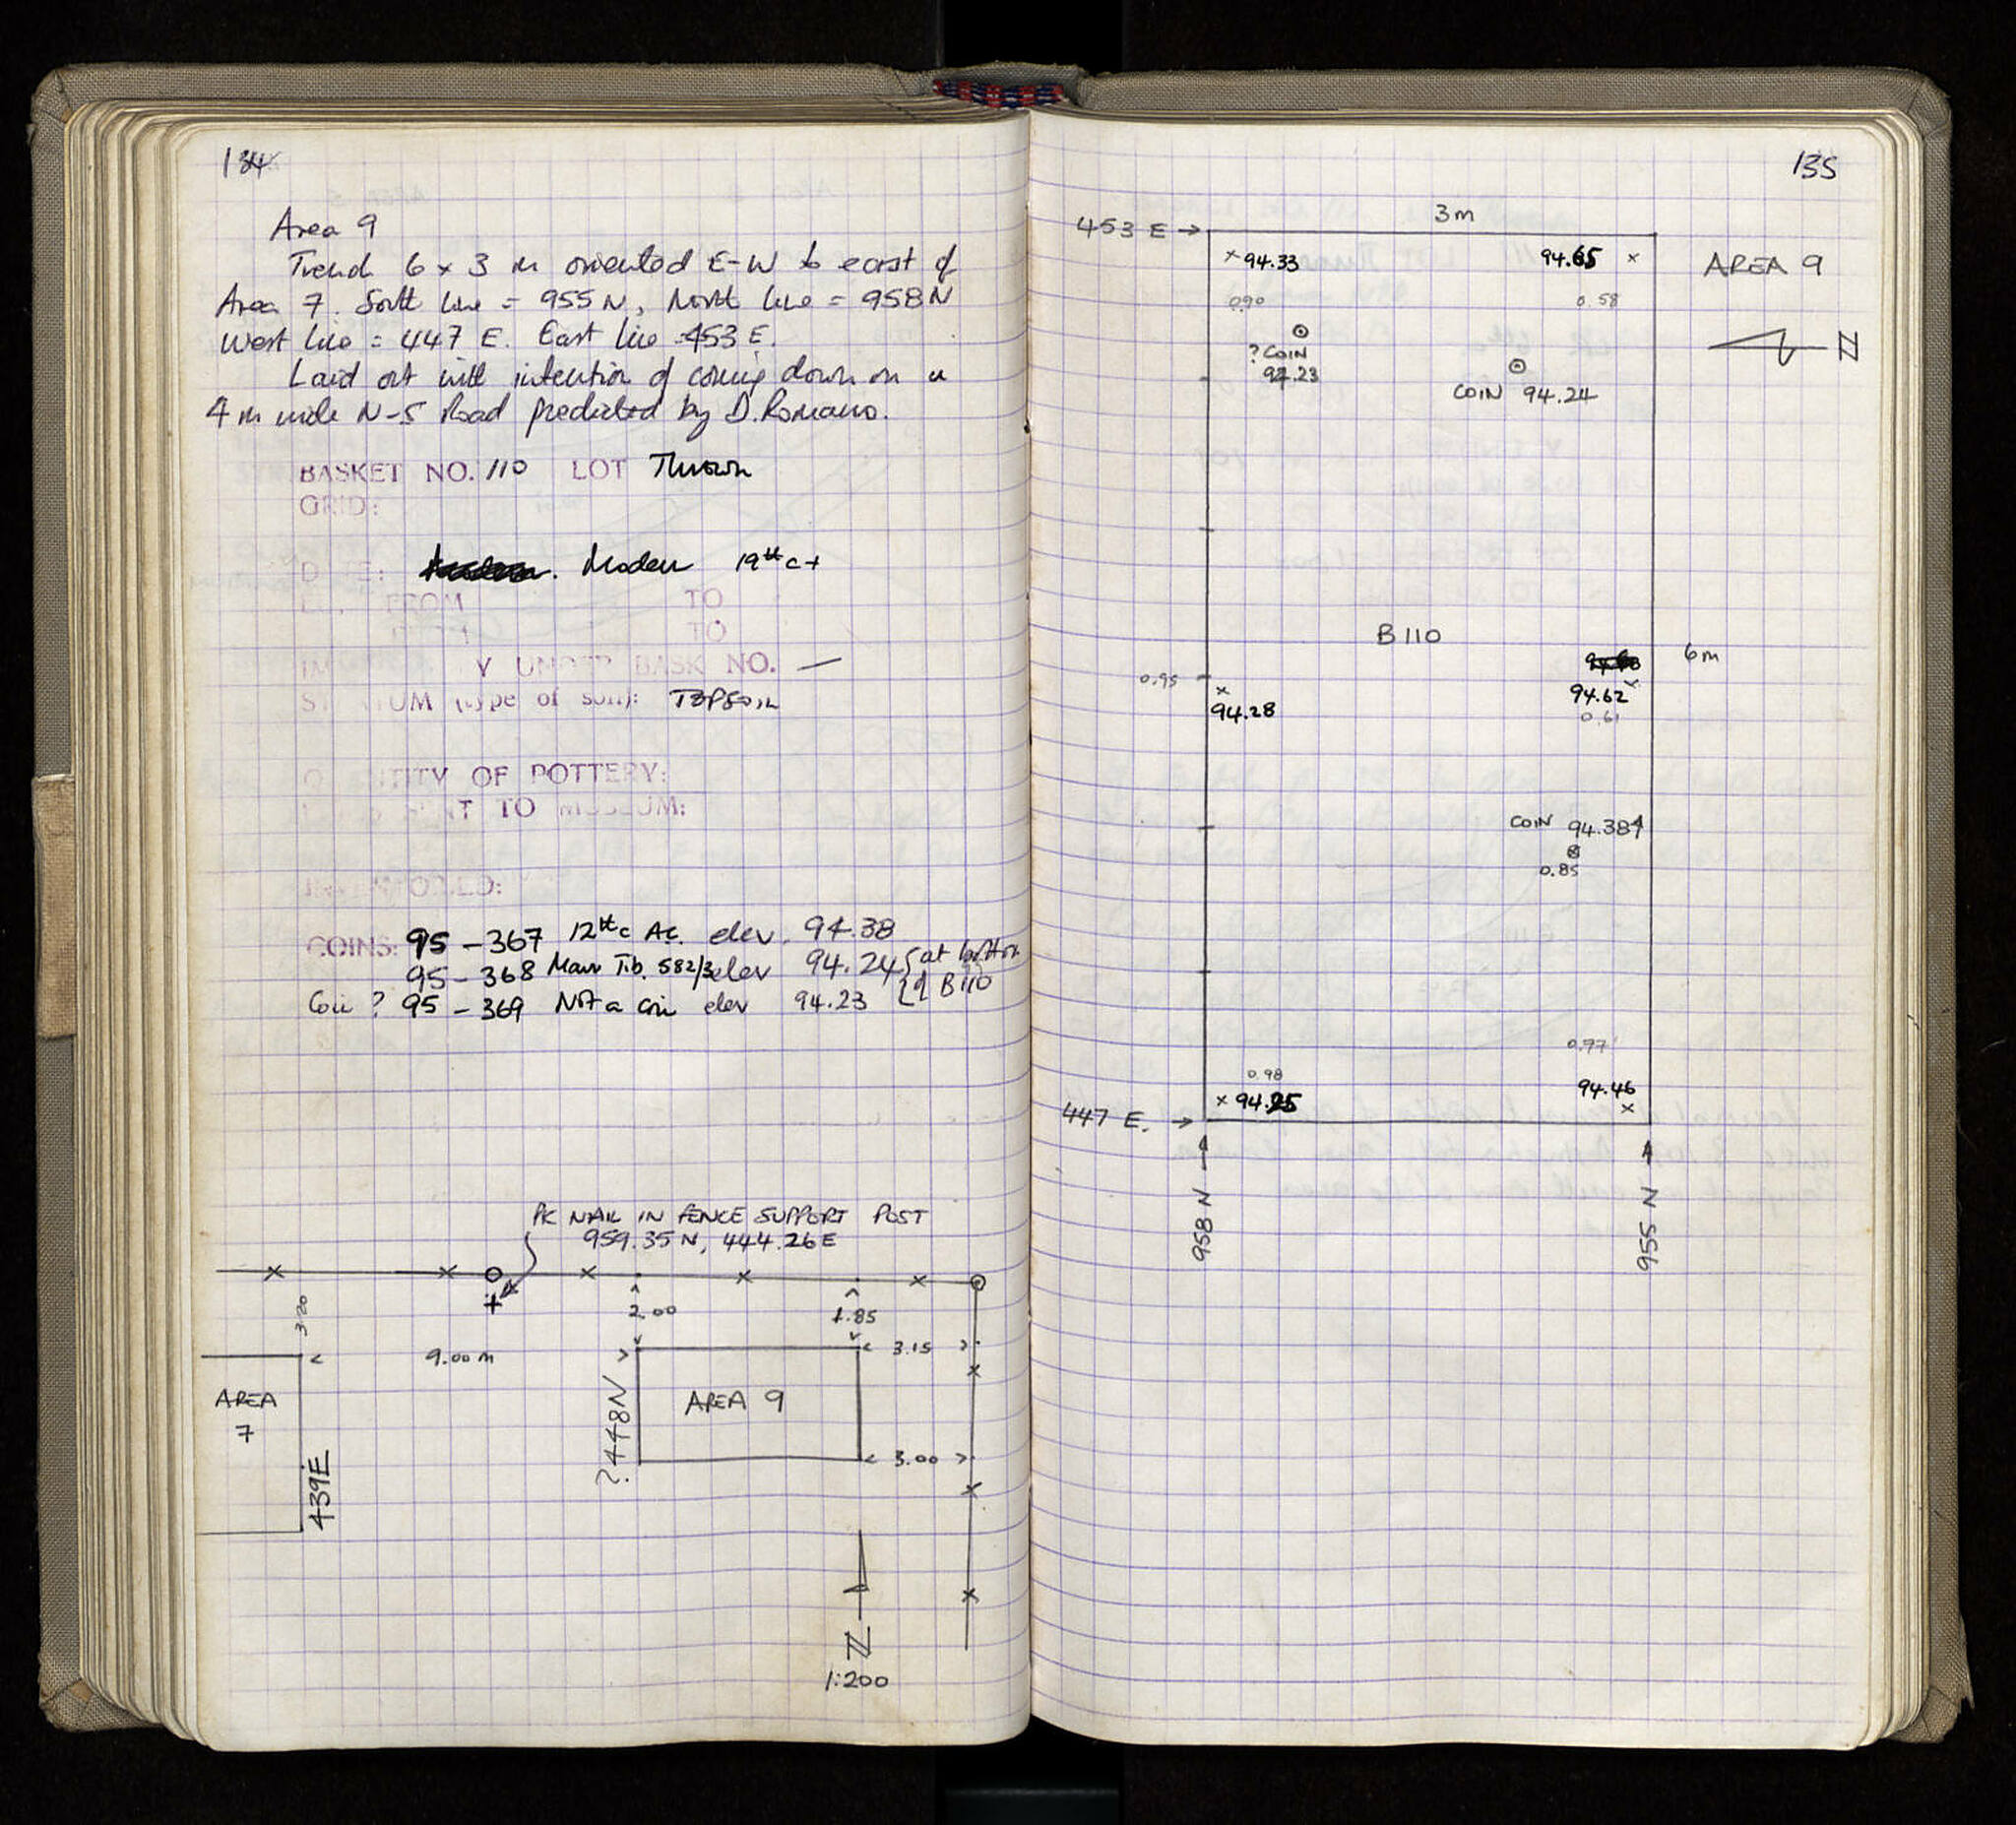 134
Area 9
Trench 6 x 3 m oriented E-W to east of
Area 7. South line = 955 N, North line = 958 N
West line = 447 E. East line = 453 E.
Laid out with intention of coming down on a
4 m wide N-S Road predicted by D. Romano.
BASKET NO. 110 LOT Thrown
GRID:
DATE: Modern 19th c +
FROM TO
TO
Y UNDER BASK NO. —
STRATUM (type of soil): TOPSOIL
QUANTITY OF POTTERY:
T TO MUSEUM:
INVENTORIED:
COINS: 95 - 367 12th c AC. elev. 94.38
95 - 368 Maur Tib. 582/3 elev 94.24 { at bottom
Coin ? 95 - 369 Not a coin elev 94.23 { of B110
PK NAIL IN FENCE SUPPORT POST
959.35 N, 444.26 E
3.20
2.00
1.85
9.00 m
3.15
AREA
7
439E
?448N
AREA 9
3.00
N
1:200
135
3m
453 E →
94.33
94.65
AREA 9
0.90
0.58
N
? COIN
94.23
COIN 94.24
B 110
6m
0.95
94.28
94.62
0.61
COIN 94.384
0.85
0.77
0.98
94.25
94.46
447 E. →
958 N
955 N